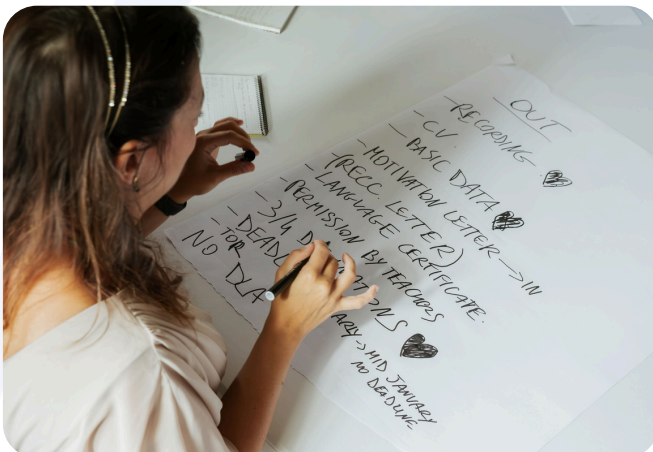 OUT
- RECORDING
- CV
- BASIC DATA
- MOTIVATION LETTER -> IN
(RECC. LETTER)
- LANGUAGE CERTIFICATE.
- PERMISSION BY TEACHERS
- 3/4
- TOR
NO DLA
-> MID JANUARY
NO DEADLINE